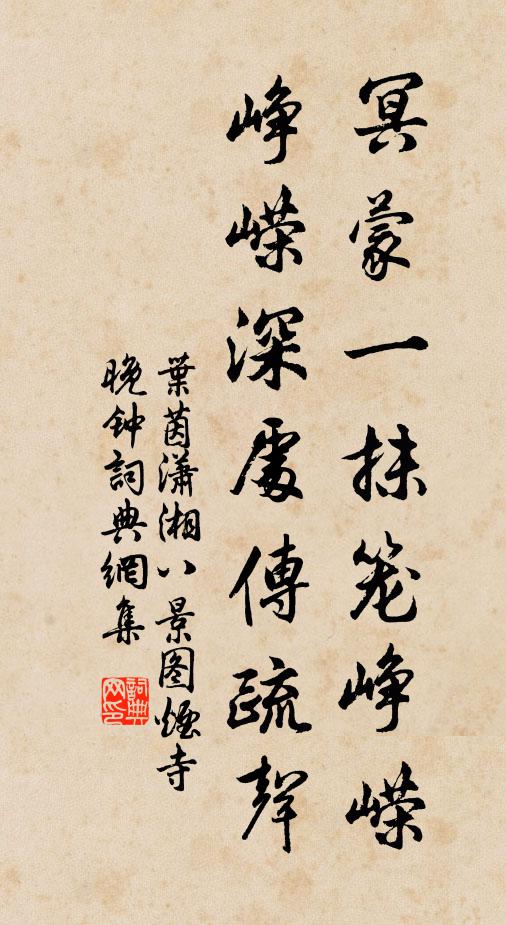 冥蒙一抹笼峥嵘
峥嵘深處傳疏聲
葉茵瀟湘八景图煙寺
晚钟詞典網集
詞典网印